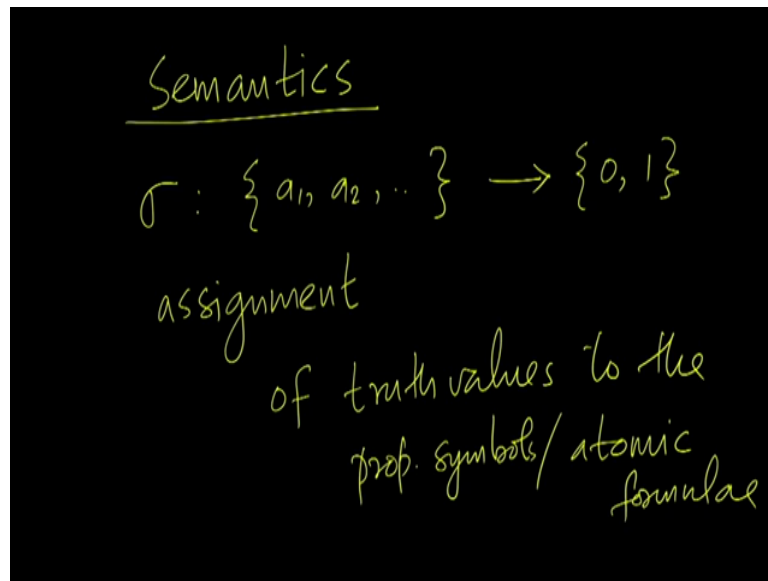 Semantics
σ : { a₁, a₂, .. } → {0, 1}
assignment
of truth values to the
prop. symbols / atomic
formulae